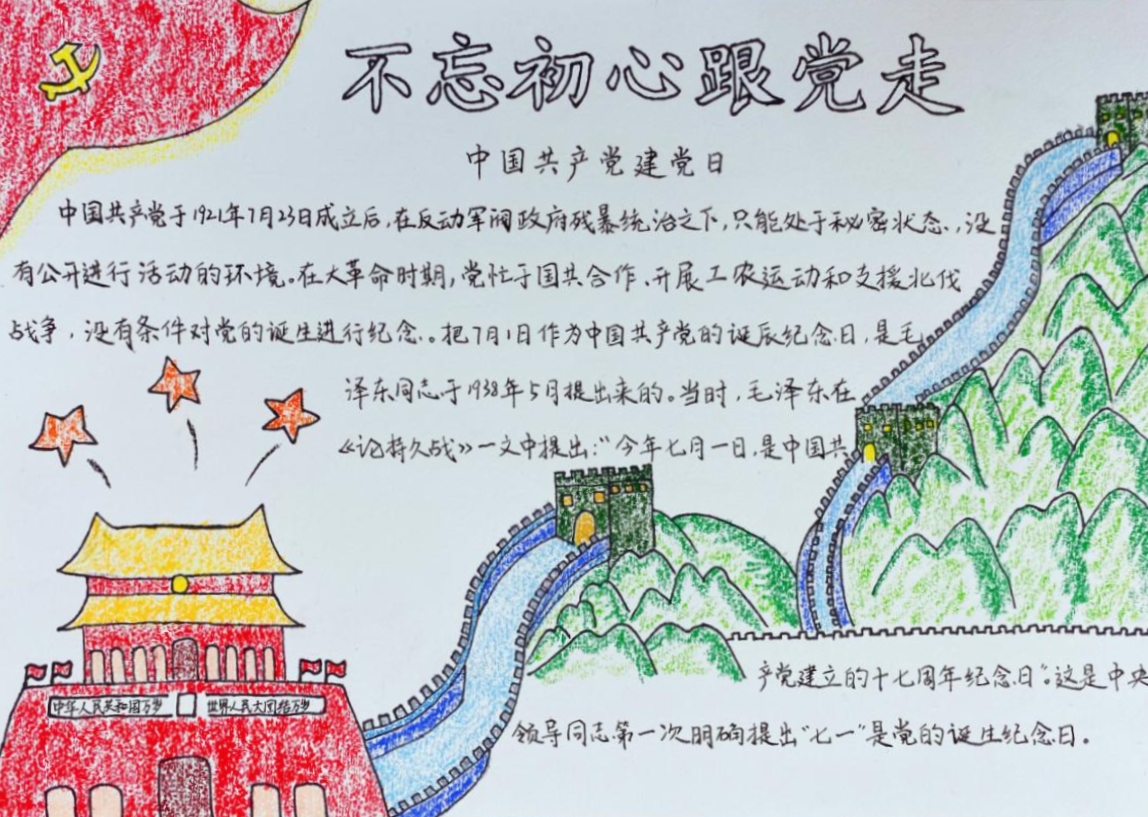 不忘初心跟党走
中国共产党建党日
中国共产党于1921年7月23日成立后,在反动军阀政府残暴统治之下,只能处于秘密状态,没
有公开进行活动的环境。在大革命时期,党忙于国共合作、开展工农运动和支援北伐
战争,没有条件对党的诞生进行纪念。把7月1日作为中国共产党的诞辰纪念日,是毛
泽东同志于1938年5月提出来的。当时,毛泽东在
《论持久战》一文中提出:“今年七月一日,是中国共
产党建立的十七周年纪念日”。这是中央
领导同志第一次明确提出“七一”是党的诞生纪念日。
中华人民共和国万岁
世界人民大团结万岁